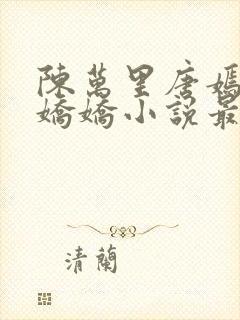 陳萬里唐嫣
嬌嬌小說最
清蘭